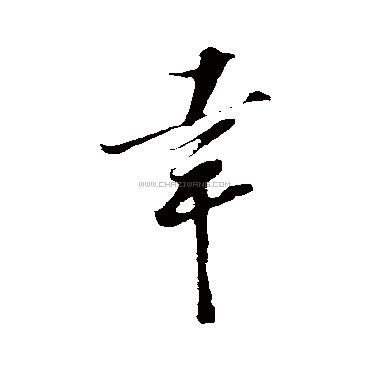 幸
WWW.CHAZIWANG.COM